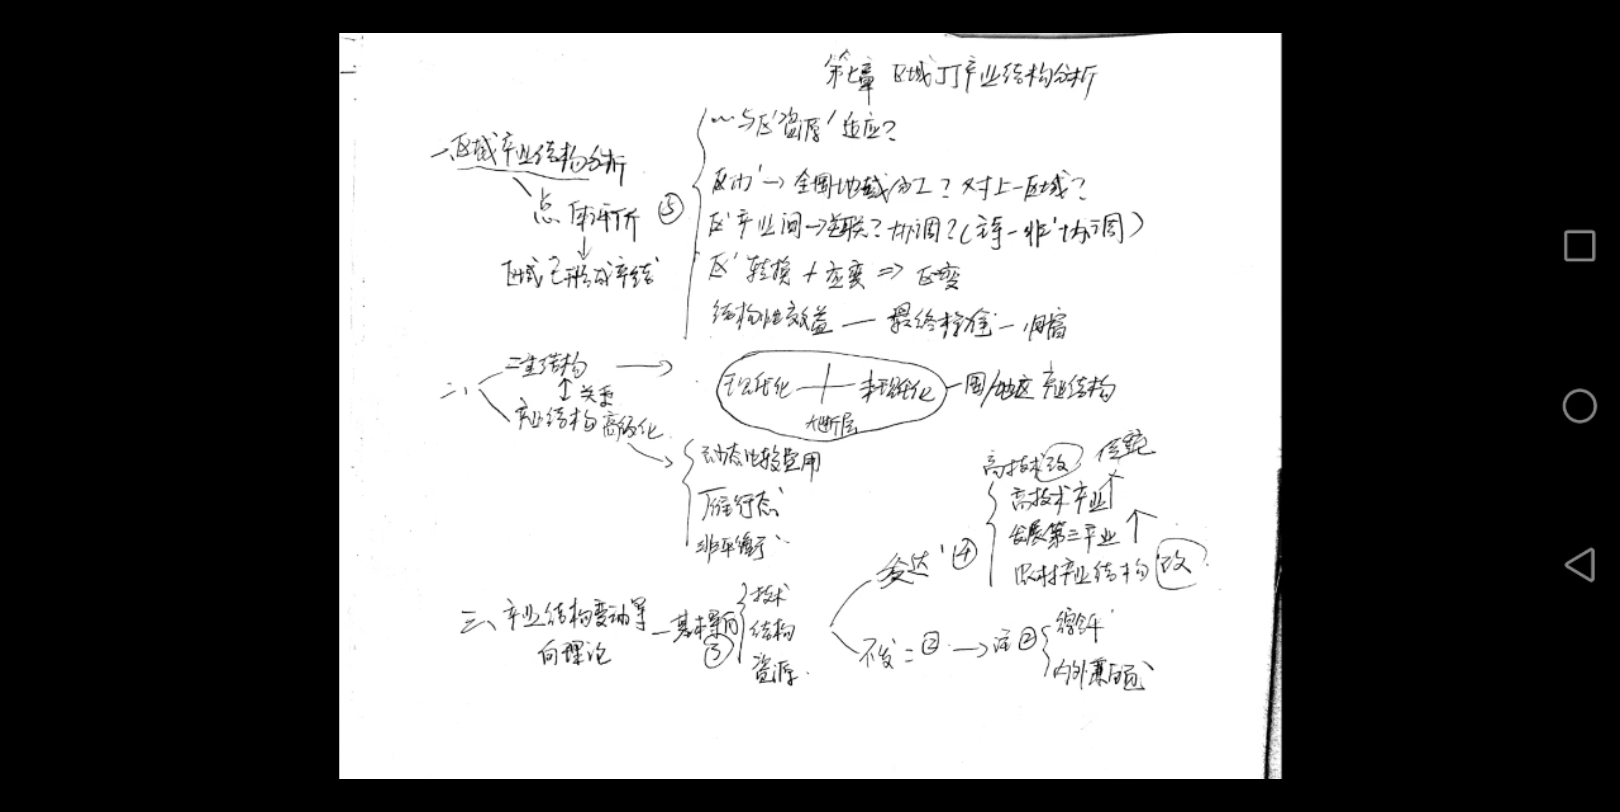 第七章 区域JJ产业结构分析
一、区域产业结构分析
点 评价 ⑤
区域已形成产结
~与区'资源'适应?
区内'→全国地域分工?对上一区域?
区'产业间→关联?协调?(主导-非'协调)
区'转换+应变⇒区变
结构性效益—最终
二、
二重结构 →
关系
产业结构高级化
现代化 + 非现代化 — 国/地区产业结构
大断层
动态比较费用
雁行态
非平衡
三、产业结构变动导向理论 — 基本导向 ③
技术
结构
资源
发达' ④
高技术改 传统
高技术产业↑
发展第三产业↑
农村产业结构改
不发 = ② → 注②
内外兼